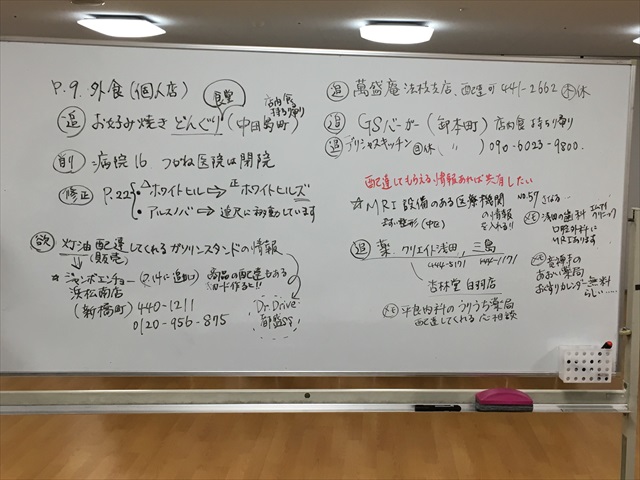 P.9. 外食(個人店)
追 お好み焼き どんぐり (中田島町)
食堂
店内食
持ち帰り
削 病院16 つがね医院は閉院
修正 P.22 ・△ホワイトヒル⇒正ホワイトヒルズ
・アルスノバ⇒道沿に移動しています
欲 灯油配達してくれるガソリンスタンドの情報
(販売)
☆ジャンボエンチョー (P.14に追加)
浜松南店
(新橋町) 440-1211
0120-956-875
商品の配達もある
カード作ると!!
Dr.Drive
追 萬盛庵 法枝支店、配達可 441-2662 休
追 GSバーガー (卸本町) 店内食 持ち帰り
追 デリシャスキッチン 休 ( 〃 ) 090-6023-9800.
配達してもらえる、情報あれば共有したい
☆MRI設備のある医療機関
の情報
を入れる
整形(中区)
NO.57
浅田の歯科
口腔外科に
MRIあります
クリニック
追 薬、クリエイト浅田、三島
444-5171 444-1171
杏林堂 白羽店
あおい薬局
お薬カレンダー無料
らしい……
平良内科のうりうち薬局
配達してくれる 応相談